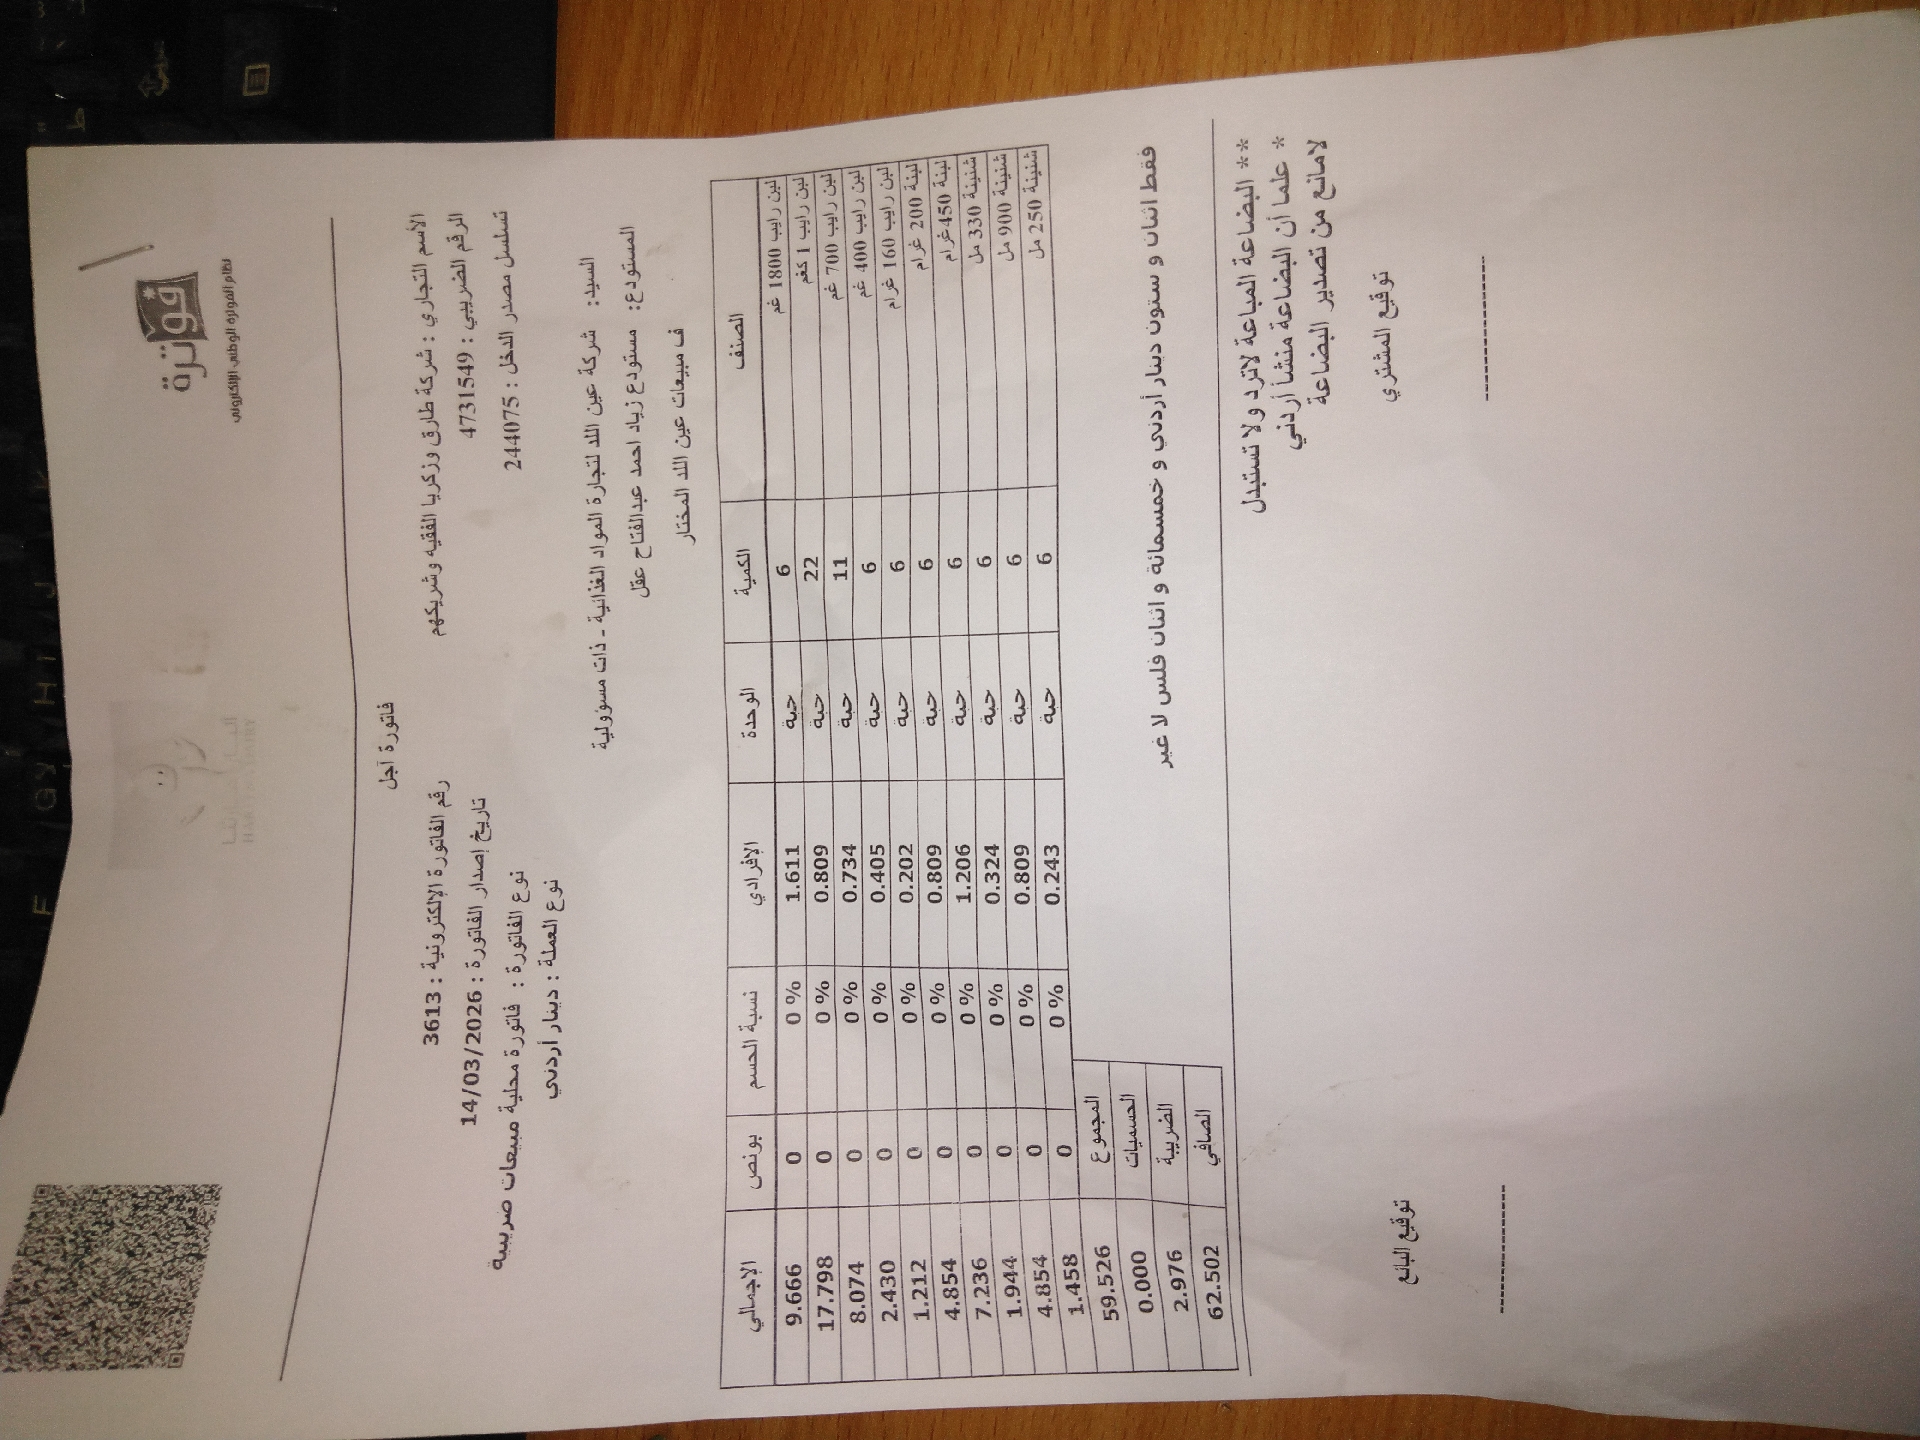 فوترة
نظام الفوترة الوطني الإلكتروني
فاتورة آجل
الأسم التجاري : شركة طارق وزكريا الفقيه وشريكهم
رقم الفاتورة الإلكترونية : 3613
الرقم الضريبي : 47731549
تاريخ إصدار الفاتورة : 14/03/2026
تسلسل مصدر الدخل : 244075
نوع الفاتورة : فاتورة محلية مبيعات ضريبية
نوع العملة : دينار أردني
السيد: شركة عين اللد لتجارة المواد الغذائية - ذات مسؤولية
المستودع: مستودع زياد احمد عبدالفتاح عقل
ف مبيعات عين اللد المختار
الصنف الكمية الوحدة الإفرادي نسبة الحسم بونص الإجمالي
لبن رايب 1800 غم 6 حبة 1.611 0 % 0 9.666
لبن رايب 1 كغم 22 حبة 0.809 0 % 0 17.798
لبن رايب 700 غم 11 حبة 0.734 0 % 0 8.074
لبن رايب 400 غم 6 حبة 0.405 0 % 0 2.430
لبن رايب 160 غرام 6 حبة 0.202 0 % 0 1.212
لبنة 200 غرام 6 حبة 0.809 0 % 0 4.854
لبنة 450 غرام 6 حبة 1.206 0 % 0 7.236
شنينة 330 مل 6 حبة 0.324 0 % 0 1.944
شنينة 900 مل 6 حبة 0.809 0 % 0 4.854
شنينة 250 مل 6 حبة 0.243 0 % 0 1.458
المجموع 59.526
الحسميات 0.000
الضريبة 2.976
الصافي 62.502
فقط اثنان و ستون دينار أردني و خمسمائة و اثنان فلس لا غير
** البضاعة المباعة لاترد ولا تستبدل
* علما أن البضاعة منشأ أردني
لامانع من تصدير البضاعة
توقيع المشتري
توقيع البائع